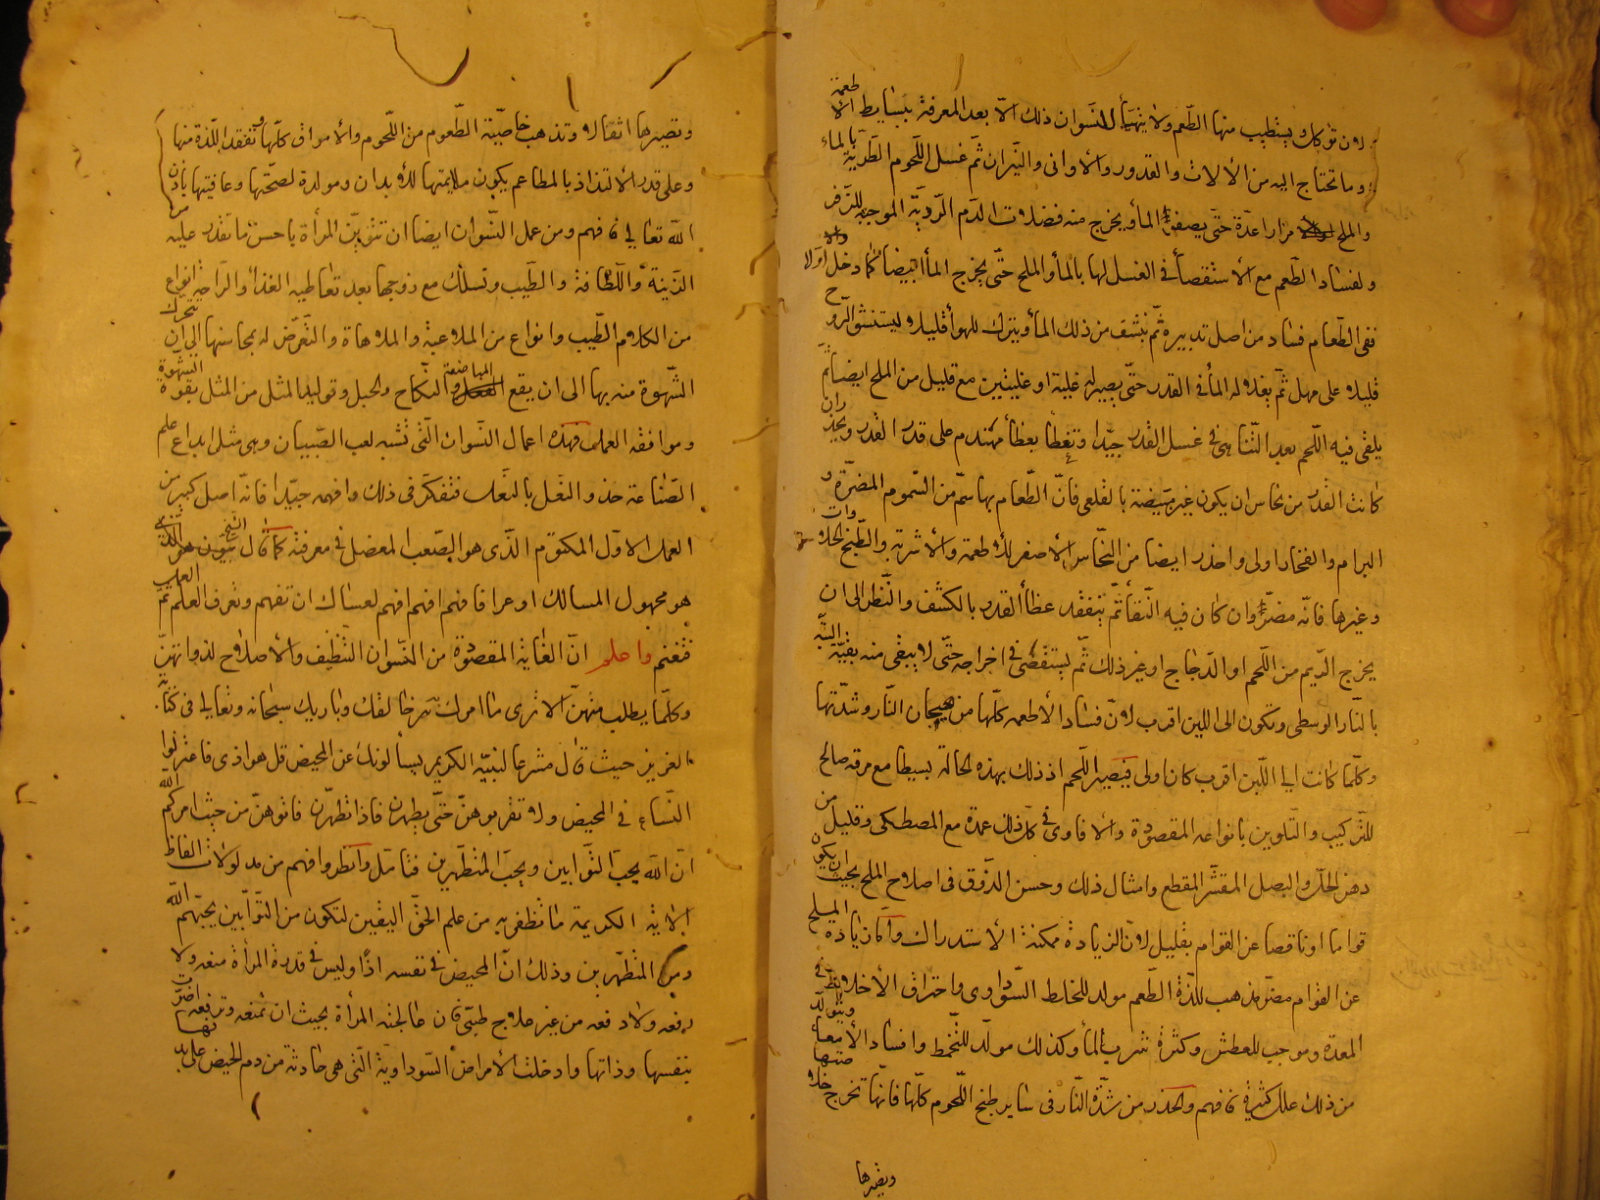 لان توكل ويستطيب منها الطعم ولا يتهيأ للنسوان ذلك الا بعد المعرفة ببسايط الاطعمة
وما تحتاج اليه من الالات والقدور والاوانى والنيران ثم غسل اللحوم الطرية بالماء
والملح مرارا عدة حتى يصفى الماء ويخرج منه فضلات الدم الردية الموجبة للزفر
ولفساد الطعم مع الاستقصاء فى الغسل لها بالماء والملح حتى يخرج الماء ابيضا كما دخل اولا
ففى الطعام فساد من اصل تدبيره ثم ينشف من ذلك الماء ويترك للهواء قليلا ليستنشق الروح
قليلا على مهل ثم يغلا له الماء فى القدر حتى يصير له غلية او غليتين مع قليل من الملح ايضا ثم
يلقى فيه اللحم بعد التناهى فى غسل القدر جيدا وتغطا بغطاء مهندم على قدر القدر ويحذر ان
كانت القدر من نحاس ان يكون غير مبيضة بالقلعى فان الطعام بها سم من السموم المضرة و
البرام والفخار اولى واحذر ايضا من النحاس الاصفر للاطعمة والاشربة والطبخ الحلاوات
وغيرها فانه مضر وان كان فيه النقاء ثم يتفقد غطاء القدر بالكشف والنظر الى ان
يخرج الديم من اللحم او الدجاج او غير ذلك ثم يستقصى فى اخراجه حتى لا يبقى منه بقية البتة
بالنار الوسطى وتكون الى اللين اقرب لان فساد الاطعمة كلها من هيجان النار وشدتها
وكلما كانت الى اللين اقرب كان اولى فيصير اللحم اذ ذلك بهذه الحالة بسيطا مع مرقه صالح
للتركيب والتلوين بانواعه المقصودة والافاوى فى كل ذلك عمدة مع المصطكى وقليل من
دهن الحل والبصل المقشر المقطع وامثال ذلك وحسن الذوق فى اصلاح الملح بحيث ان يكون
قواما او ناقصا عن القوام بقليل لان الزيادة ممكنة الاستدراك واما زيادة الملح
عن القوام مضر مذهب للذة الطعم مولد للخلط السوداوى واحتراق الاخلاط فى
المعدة وموجب للعطش وكثرة شرب الماء وكذلك مولد للتخمط وافساد الامعاء ويتولد
من ذلك علل كثيرة فافهم والحذر من شدة النار فى ساير طبخ اللحوم كلها فانها تخرج
وتصيرها
وتصيرها اثفالا وتذهب خاصية الطعوم من اللحوم والامواق كلها وتفقد اللذة منها
وعلى قدر الالتذاذ بالمطاعم يكون ملايمتها للابدان ومولدة لصحتها وعافيتها باذن
الله تعالى فافهم ومن عمل النسوان ايضا ان تتزين المرأة باحسن ما تقدر عليه من
الزينة واللطافة والطيب وتسلك مع زوجها بعد تعاطيه الغذاء والراحة انواع
من الكلام الطيب وانواع من الملاعبة والملاهاة والتعرض له بمحاسنها الى ان يتحرك
الشهوة منه بها الى ان يقع المباضعة والنكاح والحبل وتوليد المثل من المثل بقوة الشهوة
وموافقة العمل فهذه اعمال النسوان التى تشبه لعب الصبيان وهى مثل ابداع علم
الصناعة حذو النعل بالنعل فتفكر فى ذلك وافهمه جيدا فانه اصل كبير من
العمل الاول المكتوم الذى هو الصعب المعضل فى معرفته كما قال الشيخ
هو مجهول المسالك اوعرا فافهم افهم افهم لعساك ان تفهم وتعرف العلم ثم العمل
فتغنم واعلم ان الغاية المقصودة من النسوان التنظيف والاصلاح لذواتهن
وكلما يطلب منهن الا ترى ما امرك به خالقك وباريك سبحانه وتعالى فى كتابه
العزيز حيث قال مشرعا لنبيه الكريم يسألونك عن المحيض قل هو اذى فاعتزلوا
النساء فى المحيض ولا تقربوهن حتى يطهرن فاذا تطهرن فاتوهن من حيث امركم الله
ان الله يحب التوابين ويحب المتطهرين فتامل وانظر وافهم من مدلولات الفاظ
الاية الكريمة ما تظفر به من علم الحق اليقين لتكون من التوابين يحبهم الله
ومن المتطهرين وذلك ان المحيض فى نفسه اذا وليس فى قدرة المرأة منعه ولا
رفعه ولا دفعه من غير علاج طبى فان عالجته المرأة بحيث ان تمنعه وترفعه اضرت
بنفسها وذاتها وادخلت الامراض السوداوية التى هى حادثة من دم الحيض على بدنها